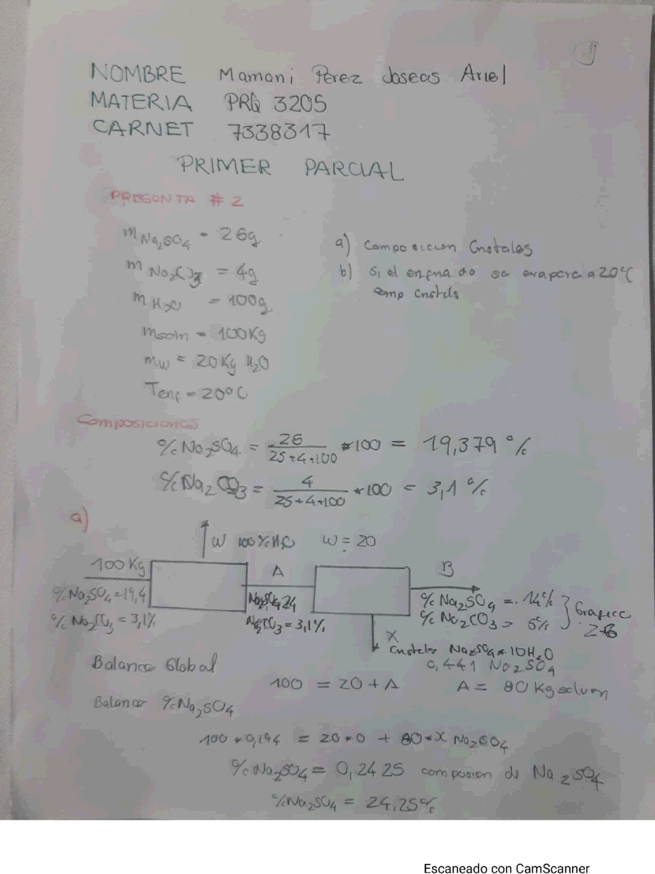 NOMBRE Mamani Perez Joseas Ariel
MATERIA PRQ 3205
CARNET 7338317
PRIMER PARCIAL
PREGUNTA # 2
m Na2SO4 = 26g
m Na2CO3 = 4g
m H2O = 100g
msoln = 100Kg
mw = 20 Kg H2O
Tenf = 20°C
a) Composicion Cristales
b) Si el se evapora a 20°C
Composiciones
% Na2SO4 = 26 / 25+4+100 *100 = 19,379 %
% Na2CO3 = 4 / 25+4+100 *100 = 3,1 %
a)
W 100% H2O W = 20
100 Kg
A
B
% Na2SO4 = 19,4
% Na2CO3 = 3,1%
Na2CO3 = 3,1%
% Na2SO4 = 14%
% Na2CO3 = 5%
Grafico 2-6
X
Cristales Na2SO4 * 10H2O
0,441 Na2SO4
Balance Global
100 = 20 + A A = 80 Kg
Balance % Na2SO4
100 * 0,194 = 20 * 0 + 80 * X Na2SO4
% Na2SO4 = 0,2425 de Na2SO4
% Na2SO4 = 24,25%
Escaneado con CamScanner